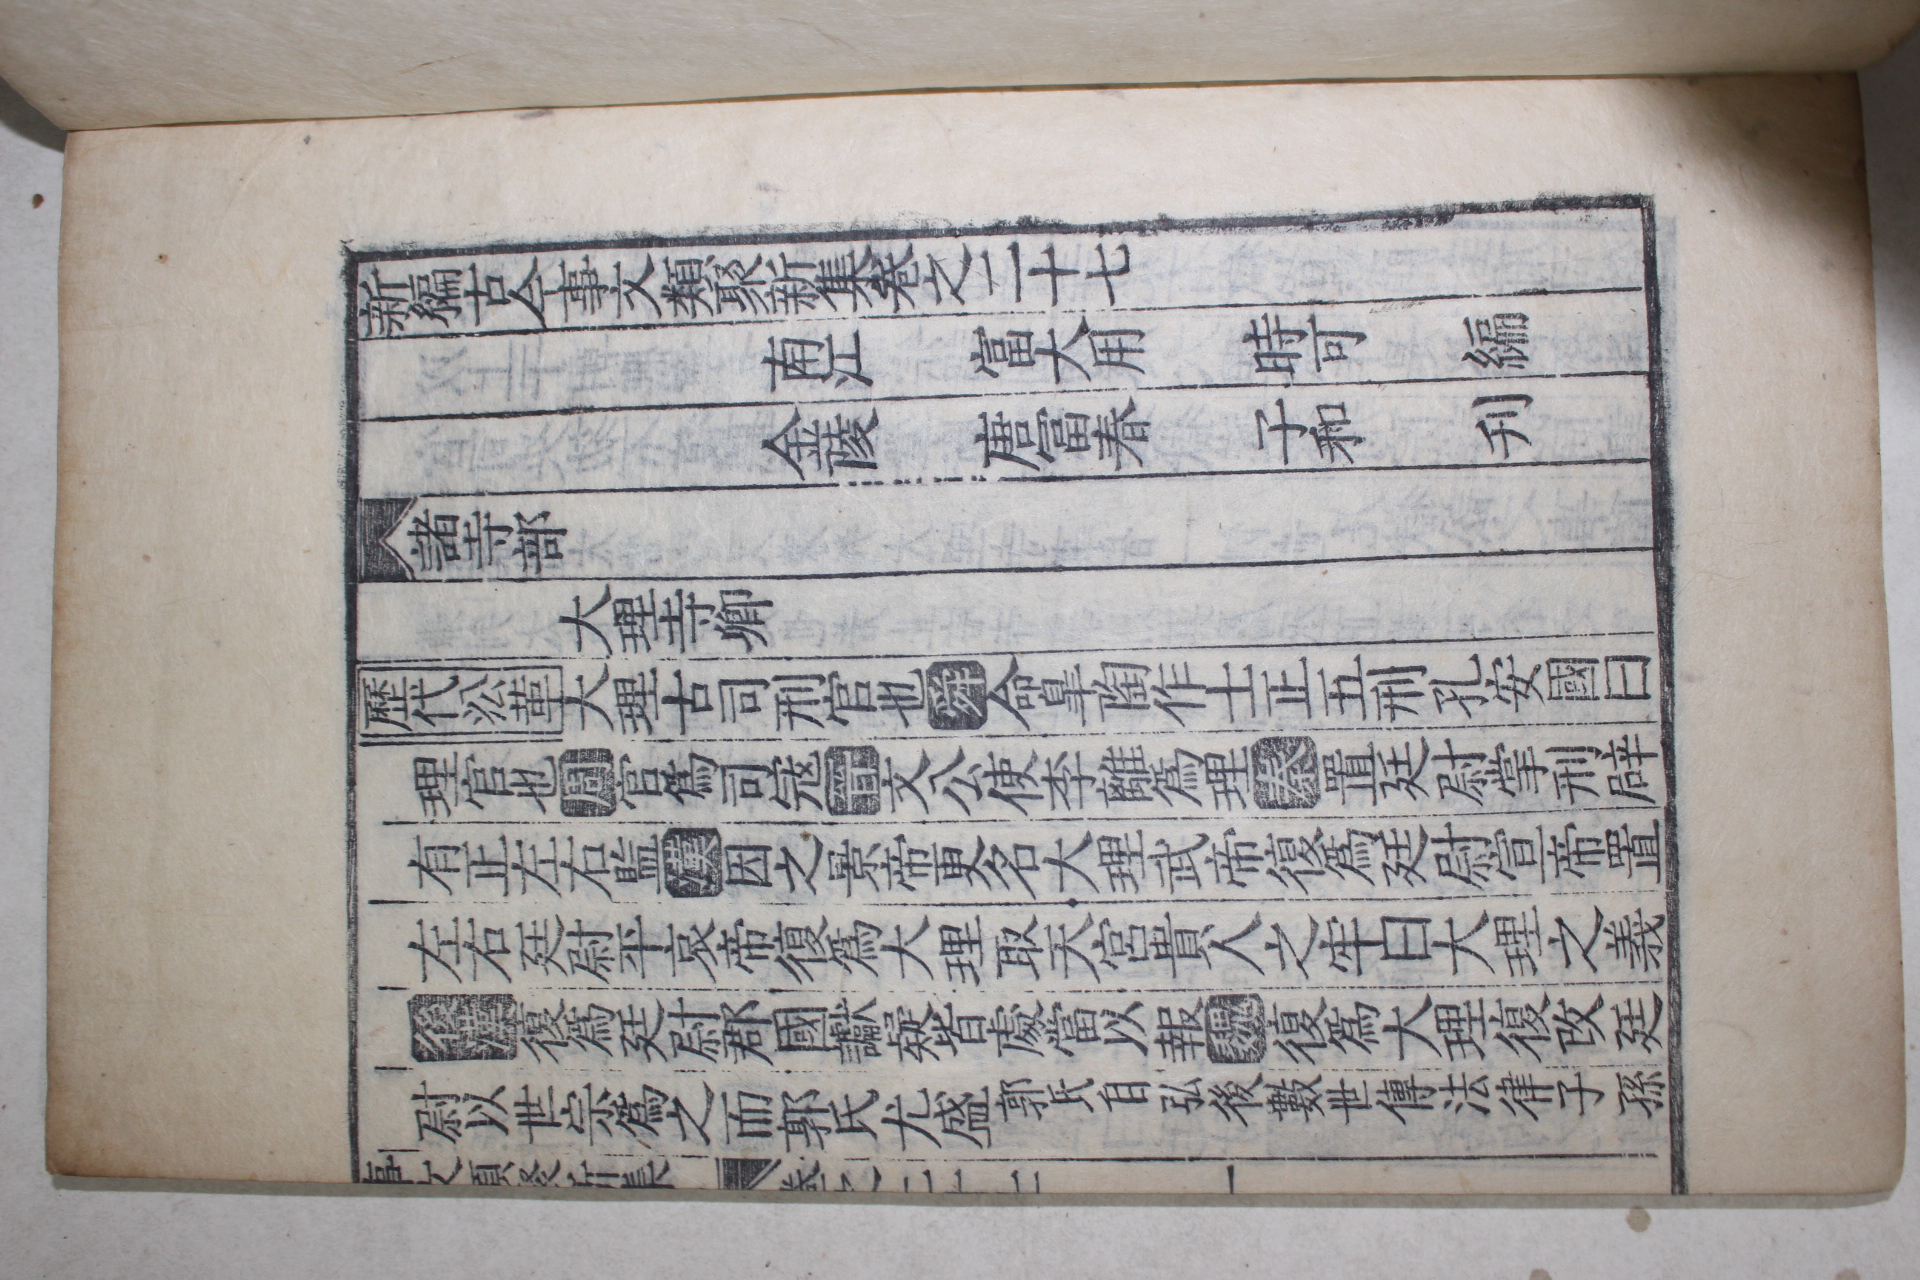 新編古今事文類聚新集卷之二十七
南江　富大用　時可　編
金陵　唐冨春　子和　刋
諸寺部
大理寺卿
歷代㳂革大理古司刑官也舜命皐陶作士正五刑孔安國曰
理官也周官爲司寇晉文公使李離爲理秦置廷尉掌刑辟
有正左右監漢因之景帝更名大理武帝復爲廷尉宣帝置
左右廷尉平哀帝復爲大理取天宮貴人之牢曰大理之義
後漢復爲廷尉郡國讞疑皆處當以報魏復爲大理復改廷
尉以世宗爲之而郭氏尤盛郭氏自弘後數世傳法律子孫
事文類聚新集　卷之二十七　一